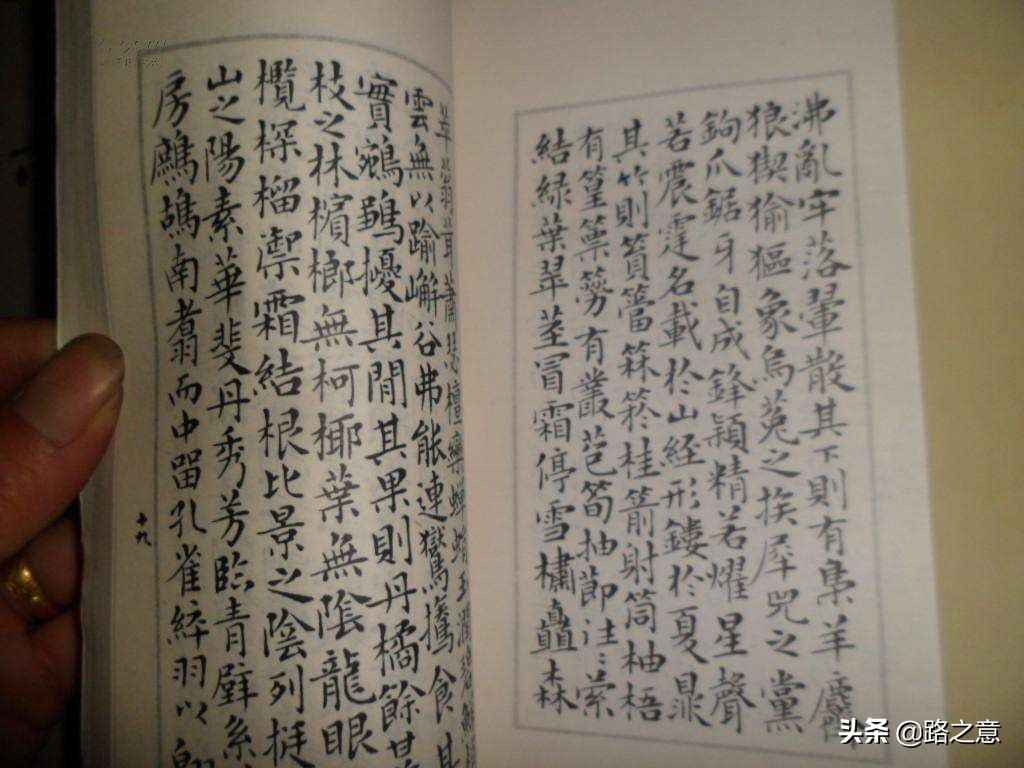 沸亂牢落翬散其下則有梟羊麡
狼猰㺄貙象烏菟之族犀兕之黨
鉤爪鋸牙自成鋒穎精若燿星聲
若震霆名載於山經形鏤於夏鼎
其竹則篔簹箖箊桂箭射筒柚梧
有篁篻簩有叢苞筍抽節往往縈
結綠葉翠莖冒霜停雪橚矗森
萃蓊茸蕭瑟檀欒蟬蜎玉潤碧鮮
雲無以踰嶰谷弗能連鸑鷟食其
實鵷鶵擾其間其果則丹橘餘甘
枝之林檳榔無柯椰葉無陰龍眼
欖棎榴禦霜結根比景之陰列挺
山之陽素華斐丹秀芳臨青壁系
房鷓鴣南翥而中留孔雀綷羽以
十九
头条 @路之意